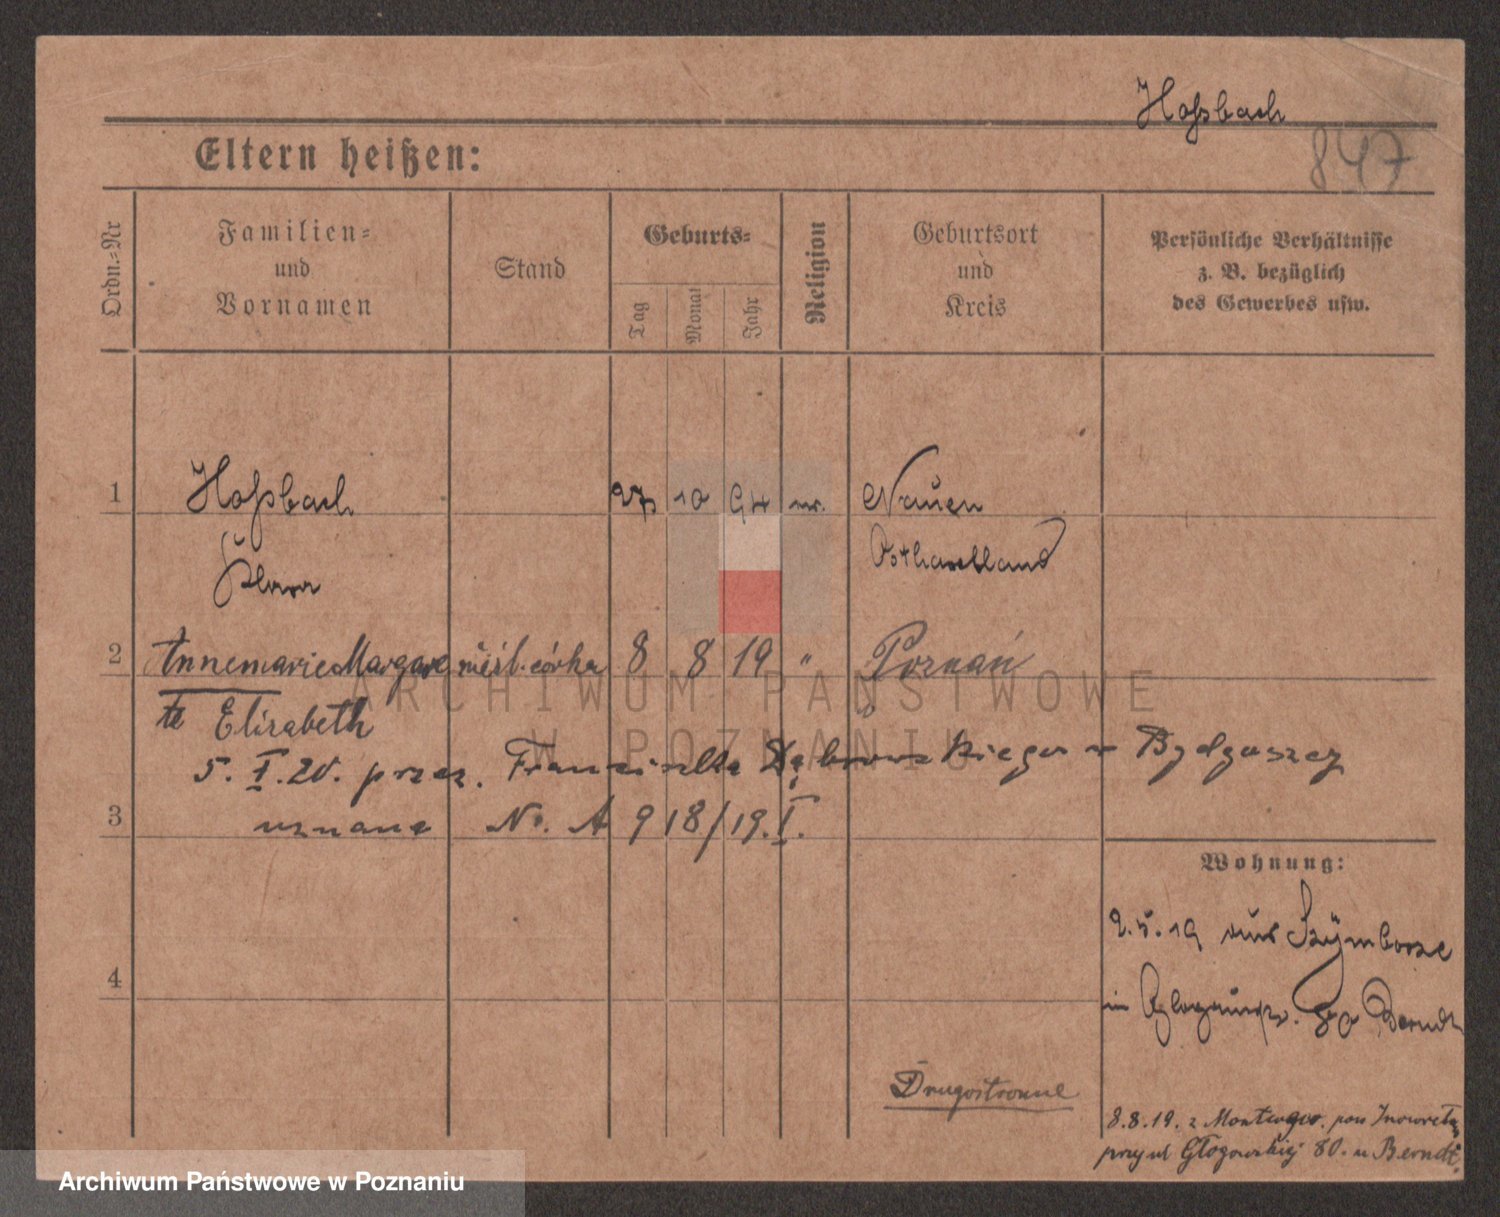 Hoßbach
847
Eltern heißen:
Ordn.-Nr
Familien-
und
Vornamen
Stand
Geburts-
Tag
Monat
Jahr
Religion
Geburtsort
und
Kreis
Persönliche Verhältnisse
z. B. bezüglich
des Gewerbes usw.
1 Hoßbach 27 10 94 Nauen
Klara Osthavelland
2 Annemarie Margare nieśl. córka 8 8 19 " Poznań
te Elisabeth
5. I. 20. przez Franciszka Dąbrowskiego w Bydgoszczy
3 uznane No. A 918/19. I.
Wohnung:
2.5.19 aus Szymborze
4
in Glogauerstr. 80 Berndt
Drugostronne
8.8.19. z pow Inowrocław
przy ul Głogowskiej 80. u Berndt.
ARCHIWUM PAŃSTWOWE
W POZNANIU
Archiwum Państwowe w Poznaniu